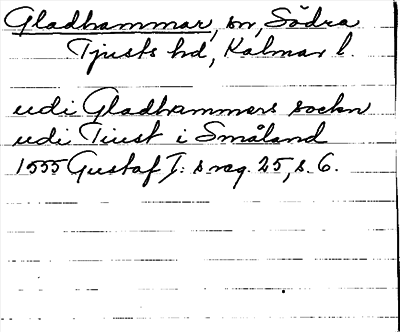 Gladhammar, sn, Södra
Tjusts hd, Kalmar l.
udi Gladhammers sockn
udi Tiust i Småland
1555 Gustaf I: s reg. 25, s. 6.